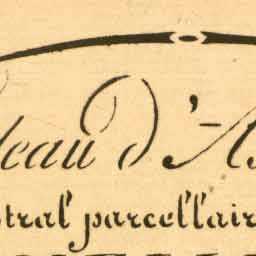 leau d'As
tral parcellair